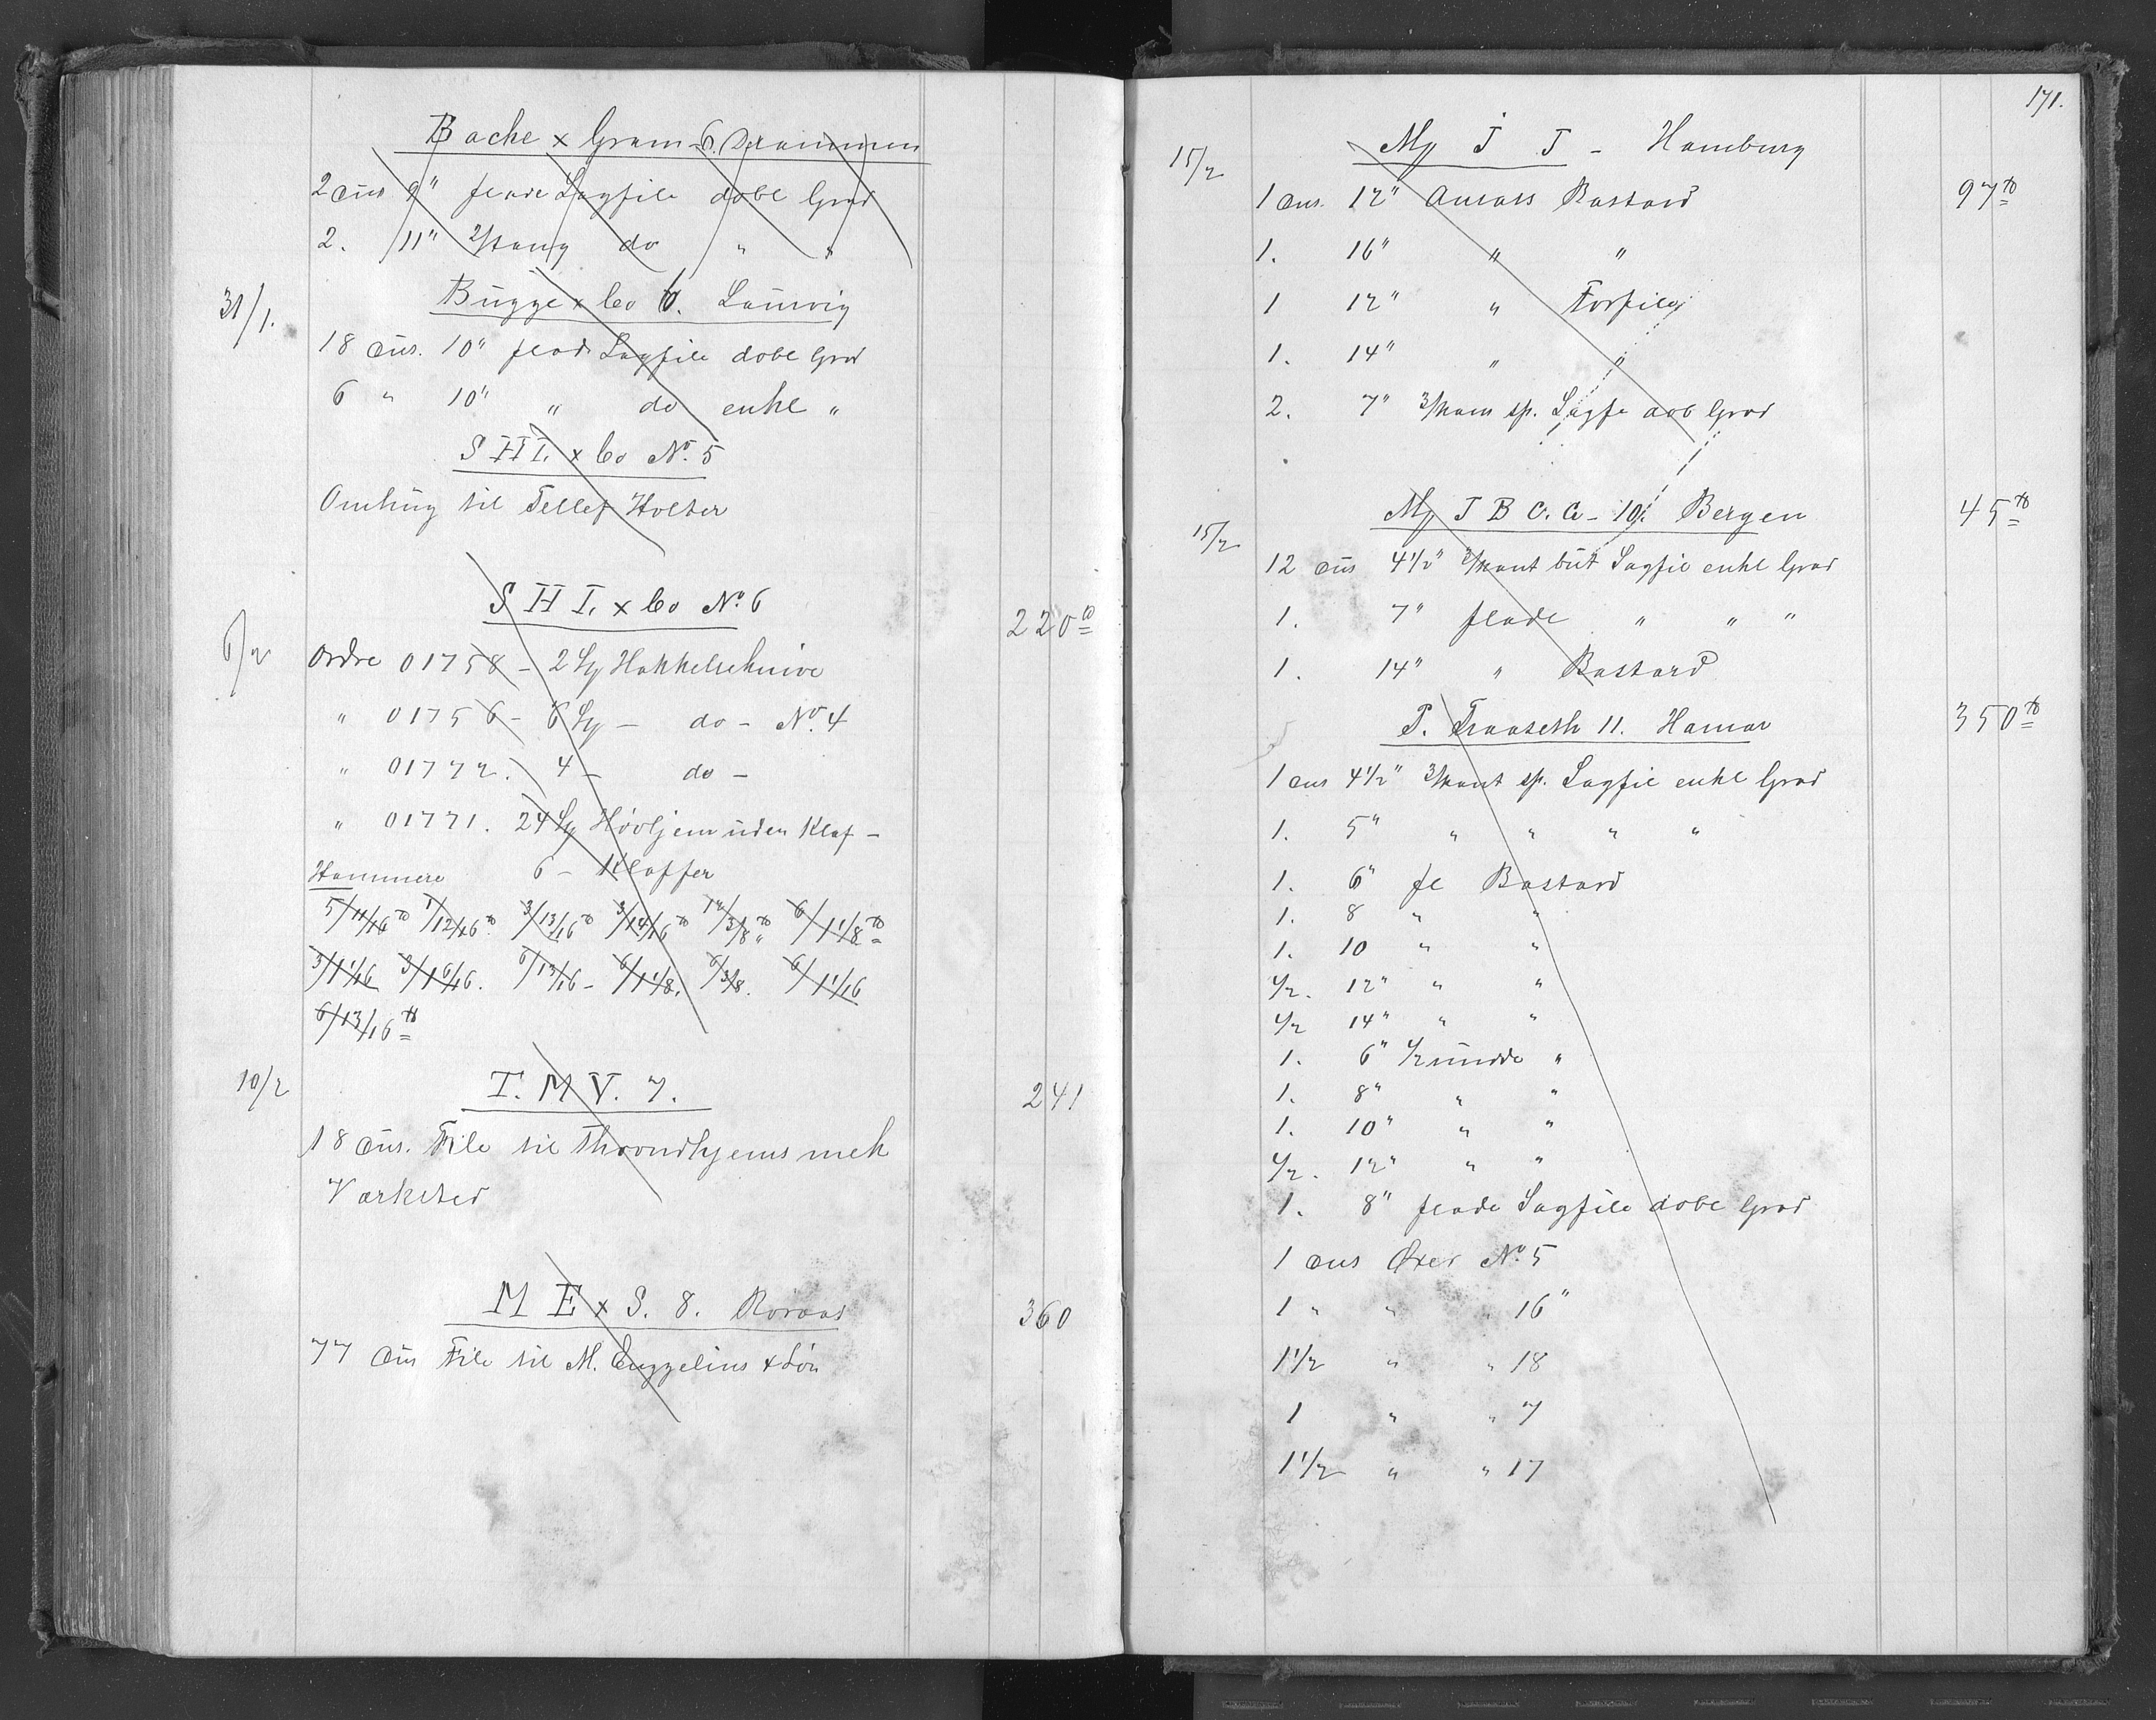 Bache x Gram 6. Drammen
2 dus 9" flade Sagfile dobl Grad
2. 11" 2/kang do " "
31/1. Bugge x Co 6. Laurvig
18 dus. 10" flad Sagfile dobl Grad
6 " 10" " do enkl "
S H I. x Co No. 5
til Tellef Holter
S H I. x Co No. 6 220 ℔
6/2 Ordre 01758 - 2 Hakkelseknive
" 01756 - 6 - do - No. 4
" 01772. 4 - do -
" 01771. 24 Høvljern uden Klaf -
Hammere 6 - Klaffer
5/11/16 ℔ 7/12/16 ℔. 3/13/16 ℔ 3/14/16 ℔ 12/3/8 ℔ 6/1 1/8 ℔
3/1 1/16 3/1 6/16. 6/13/16 - 6/1 1/8. 6/3/8. 6/1 1/16
6/13/16 ℔
10/2 T. M V. 7. 241
18 dus. File til Throndhjems mek
Værksted
M E x S. 8. Røraas 360
77 dus File til M. Engzelius & Søn
171.
15/2 J J - Hamburg
1 dus. 12" Ansats Bastard 97 ℔
1. 16" " "
1 12" " Forfile
1. 14" " "
2. 7" 3/kant sp. Sagfe dob Grad
15/2 J B C. C - 10. Bergen 45 ℔
12 dus 4 1/2" 3/kant but Sagfil enkl Grad
1. 7" flade " " "
1. 14" " Bastard
P. Traaseth 11. Hamar 350 ℔
1 dus 4 1/2" 3/kant sp. Sagfil enkl Grad
1. 5" " " " "
1. 6" fl Bastard
1. 8 " "
1. 10 " "
1/2. 12" " "
1/2 14" " "
1. 6" 1/2 runde "
1. 8" " "
1. 10" " "
1/2. 12" " "
1. 8" flade Sagfile dobl Grad
1 dus Øxer No. 5
1 " " " 16"
1 1/2 " " 18
1 " " 7
1 1/2 " " 17